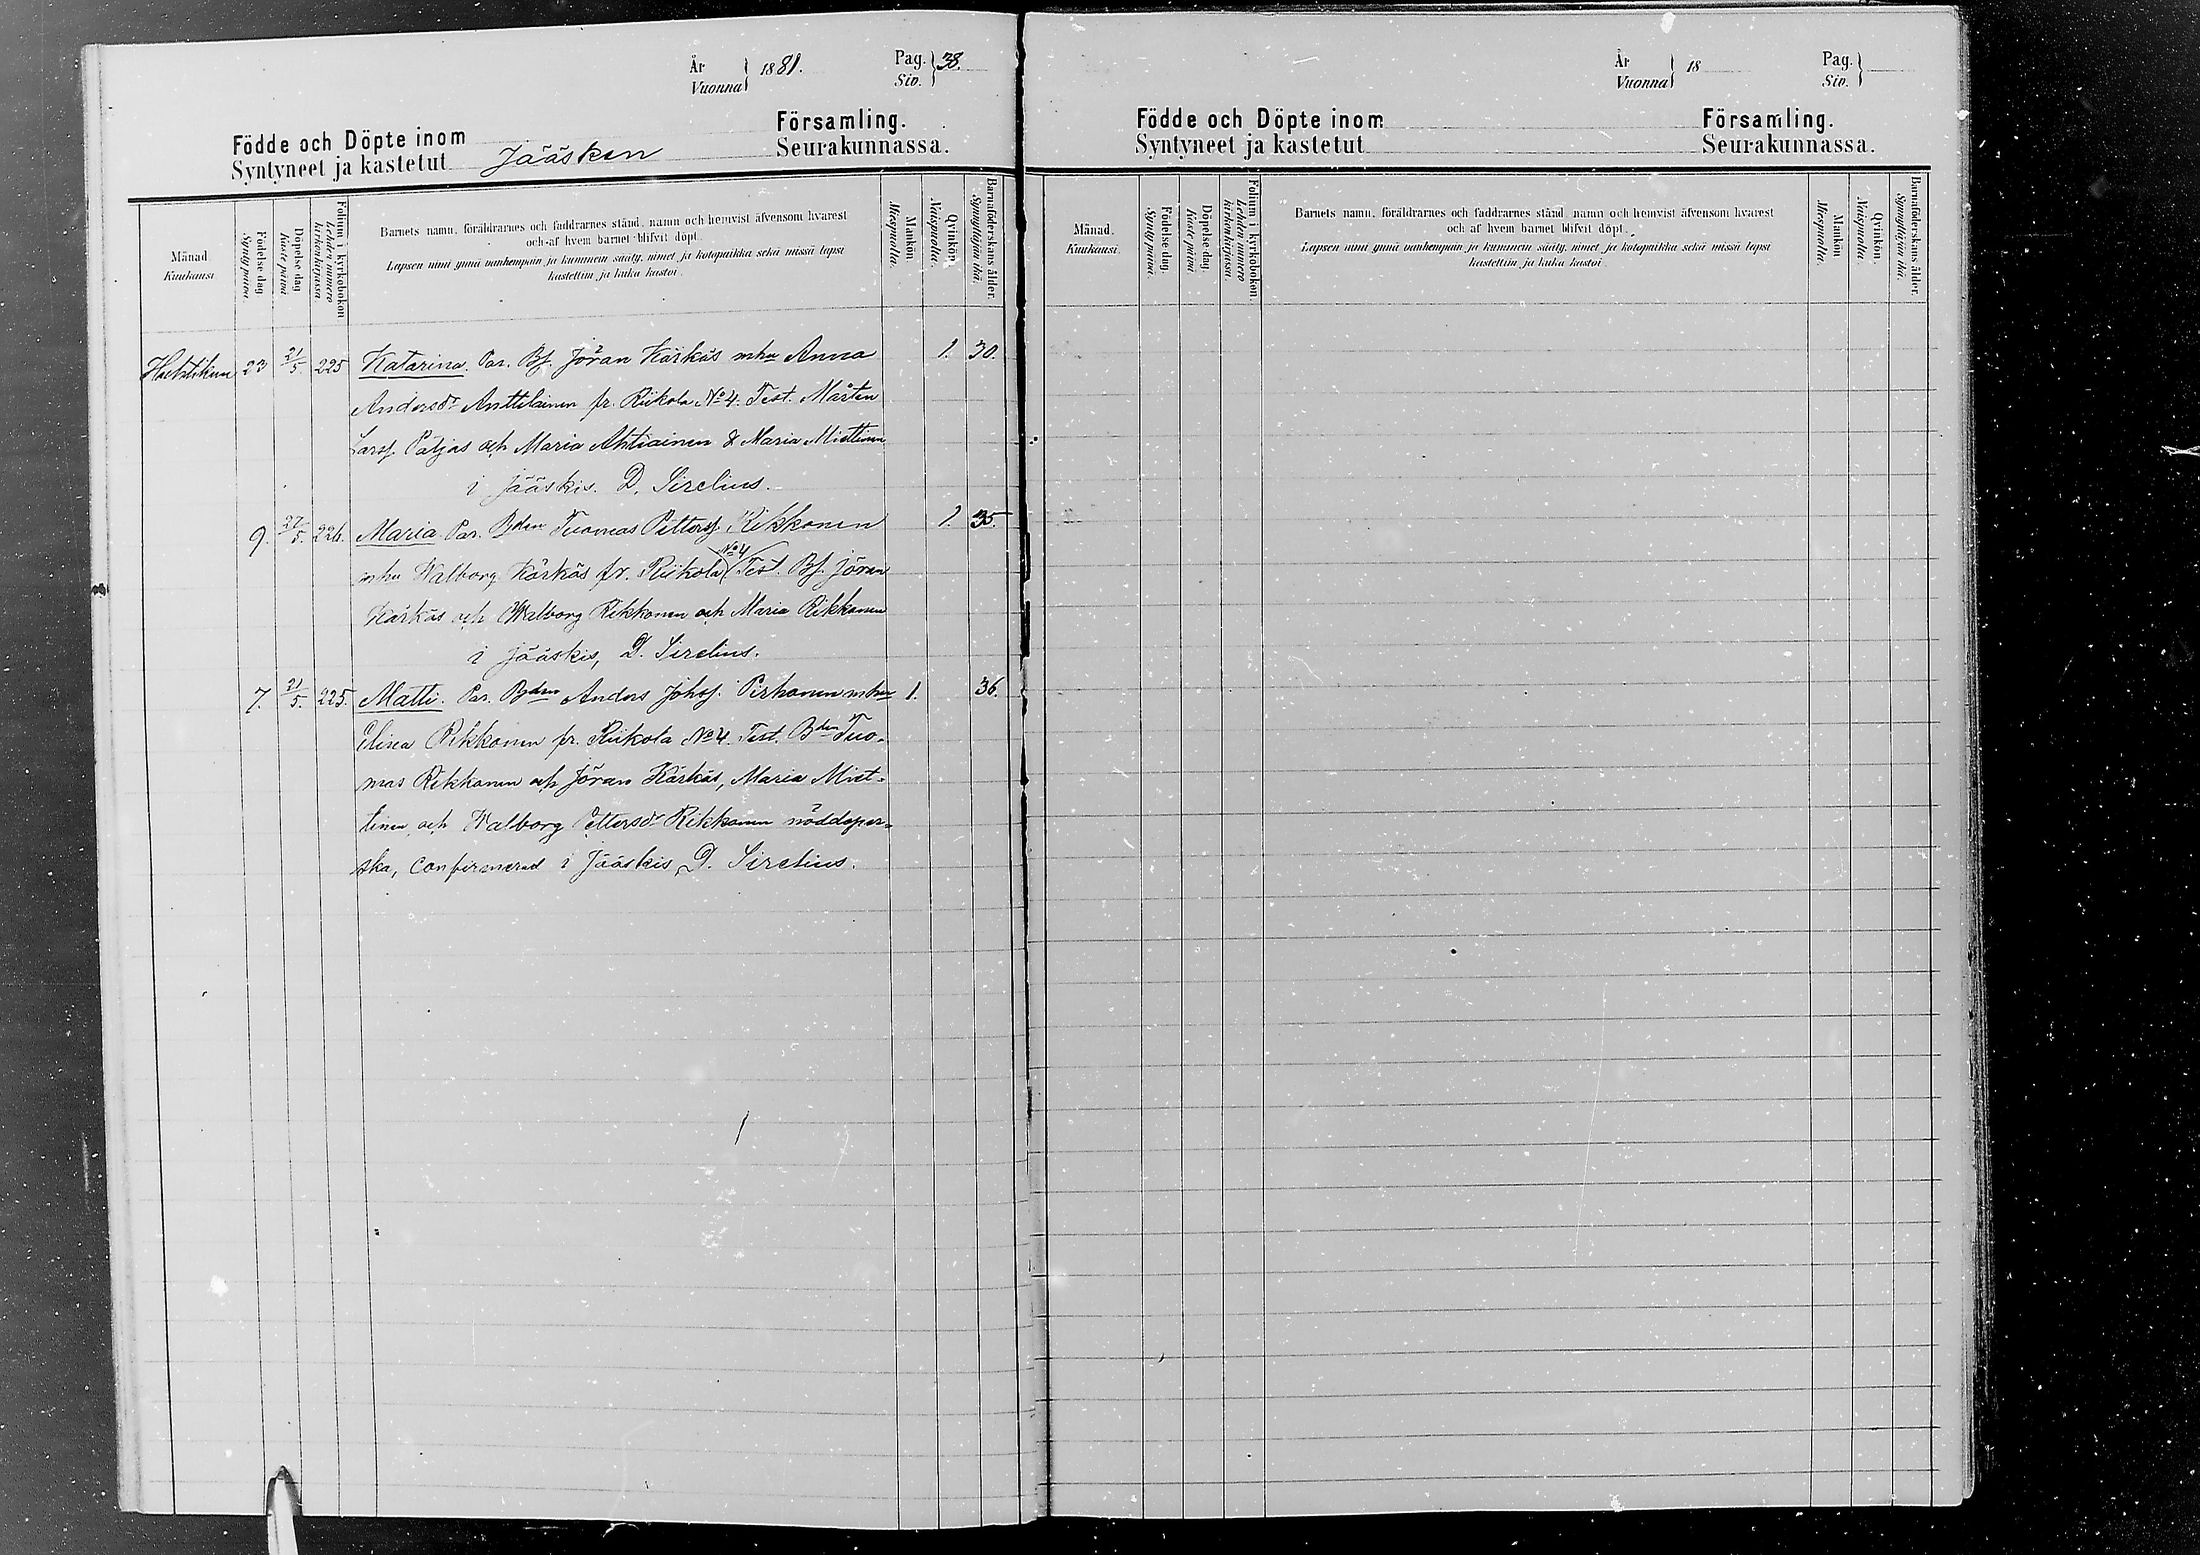 År
Vuonna } 1881.
Pag.
Siv. } 38.
Födde och Döpte inom
Syntyneet ja kastetut Jääsken
Församling.
Seurakunnassa.
Månad.
Kuukausi
Födelse dag
Synty päivä.
Döpelse dag
Kaste päivä
Folium i kyrkoboken
Lehden numero kirkonkirjassa.
Barnets namn, föräldrarnes och faddrarnes stånd, namn och hemvist äfvensom hvarest
och af hvem barnet blifvit döpt.
Lapsen nimi ynnä vanhempain ja kummein sääty, nimet ja kotopaikka sekä missä lapsi
kastettiin ja kuka kastoi.
Mankön.
Miespuolia.
Qvinkön.
Naispuolia.
Barnaföderskans ålder.
Synnyttäjän ikä.
Huhtikuu 23 21/5. 225 Katarina. Par. Bf. Jöran Kärkäs mhu Anna 1. 30.
Andersdr Anttilainen fr. Riikola No 4. Test. Mårten
Larsf. Patjas och Maria Ahtiainen & Maria Miettinen
i Jääskis. D. Sirelius.
9. 27/5. 226. Maria Par. Bden Tuomas Pettersf. Rikkonen 1. 35.
mhu Walborg Kärkäs fr. Riikola No 4 Test. Bf. Jöran
Kärkäs och Walborg Rikkonen och Maria Rikkonen
i Jääskis, D. Sirelius.
7. 21/5. 225. Matti. Par. Bden Anders Johsf. Pirhonen mhu 1. 36.
Elisa Rikkonen fr. Riikola No 4. Test. Bden Tuo-
mas Rikkonen och Jöran Kärkäs, Maria Miet-
tinen och Walborg Pettersdr Rikkonen nöddöper-
ska, confirmerad i Jääskis, D. Sirelius.
År
Vuonna } 18
Pag.
Siv. }
Födde och Döpte inom
Syntyneet ja kastetut
Församling.
Seurakunnassa.
Månad.
Kuukausi
Födelse dag.
Synty päivä.
Döpelse dag
Kaste päivä.
Folium i kyrkoboken.
Lehden numero kirkonkirjassa.
Barnets namn, föräldrarnes och faddrarnes stånd, namn och hemvist äfvensom hvarest
och af hvem barnet blifvit döpt.
Lapsen nimi ynnä vanhempain ja kummein sääty, nimet ja kotopaikka sekä missä lapsi
kastettiin ja kuka kastoi.
Mankön
Miespuolia.
Qvinkön.
Naispuolia.
Barnaföderskans ålder.
Synnyttäjän ikä.